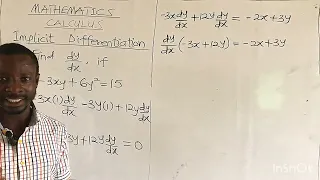 MATHEMATICS
CALCULUS
Implicit Differentiation
Find dy/dx, if
-3xy + 6y² = 15
3x(1)dy/dx - 3y(1) + 12y dy/dx
3y + 12y dy/dx = 0
-3x dy/dx + 12y dy/dx = -2x + 3y
dy/dx (-3x + 12y) = -2x + 3y